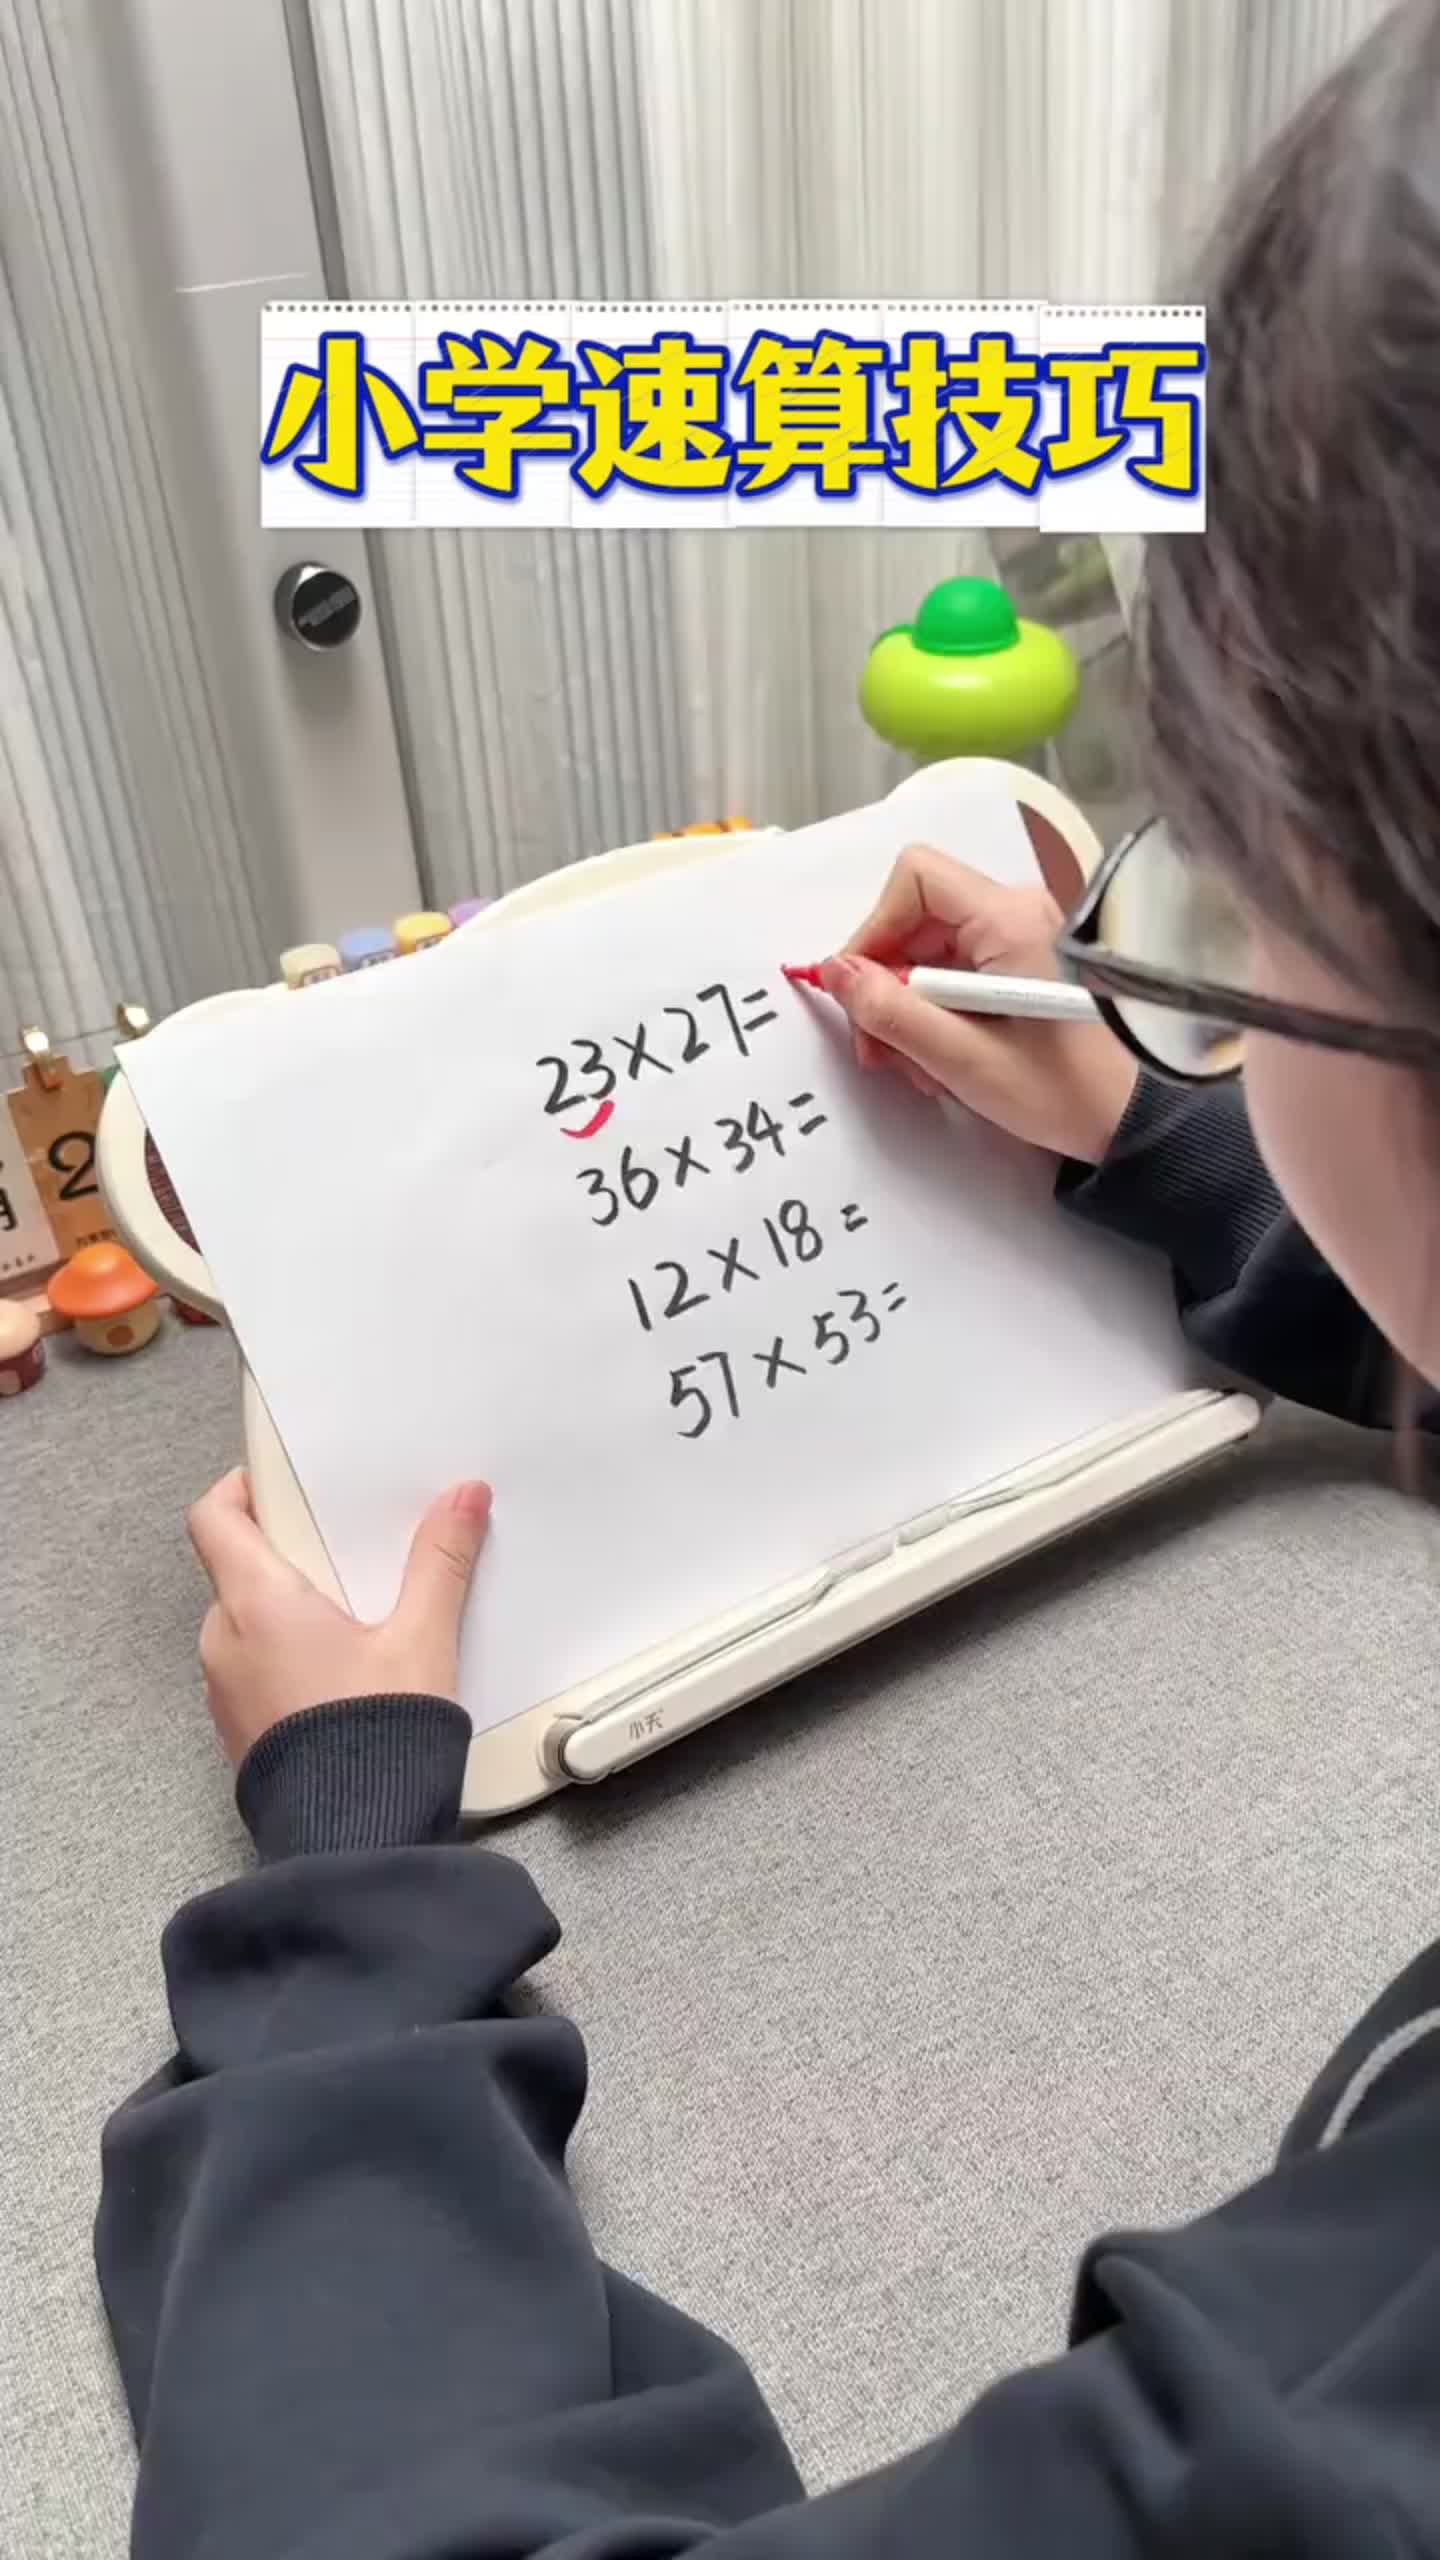 小学速算技巧
23×27=
36×34=
12×18=
57×53=
2
小天